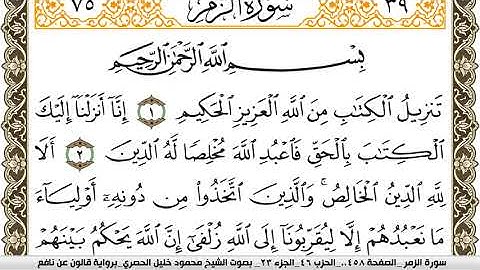 ٣٩ سُورَةُ الزُّمَرِ ٧٥
بِسْمِ اللَّهِ الرَّحْمَٰنِ الرَّحِيمِ
تَنزِيلُ الْكِتَابِ مِنَ اللَّهِ الْعَزِيزِ الْحَكِيمِ ١ إِنَّا أَنزَلْنَا إِلَيْكَ
الْكِتَابَ بِالْحَقِّ فَاعْبُدِ اللَّهَ مُخْلِصًا لَّهُ الدِّينَ ٢ أَلَا
لِلَّهِ الدِّينُ الْخَالِصُ وَالَّذِينَ اتَّخَذُوا مِن دُونِهِ أَوْلِيَاءَ
مَا نَعْبُدُهُمْ إِلَّا لِيُقَرِّبُونَا إِلَى اللَّهِ زُلْفَىٰ إِنَّ اللَّهَ يَحْكُمُ بَيْنَهُمْ
سورة الزمر _الصفحة ٤٥٨.._الحزب ٤٦_الجزء ٢٣_ بصوت الشيخ محمود خليل الحصري_برواية قالون عن نافع